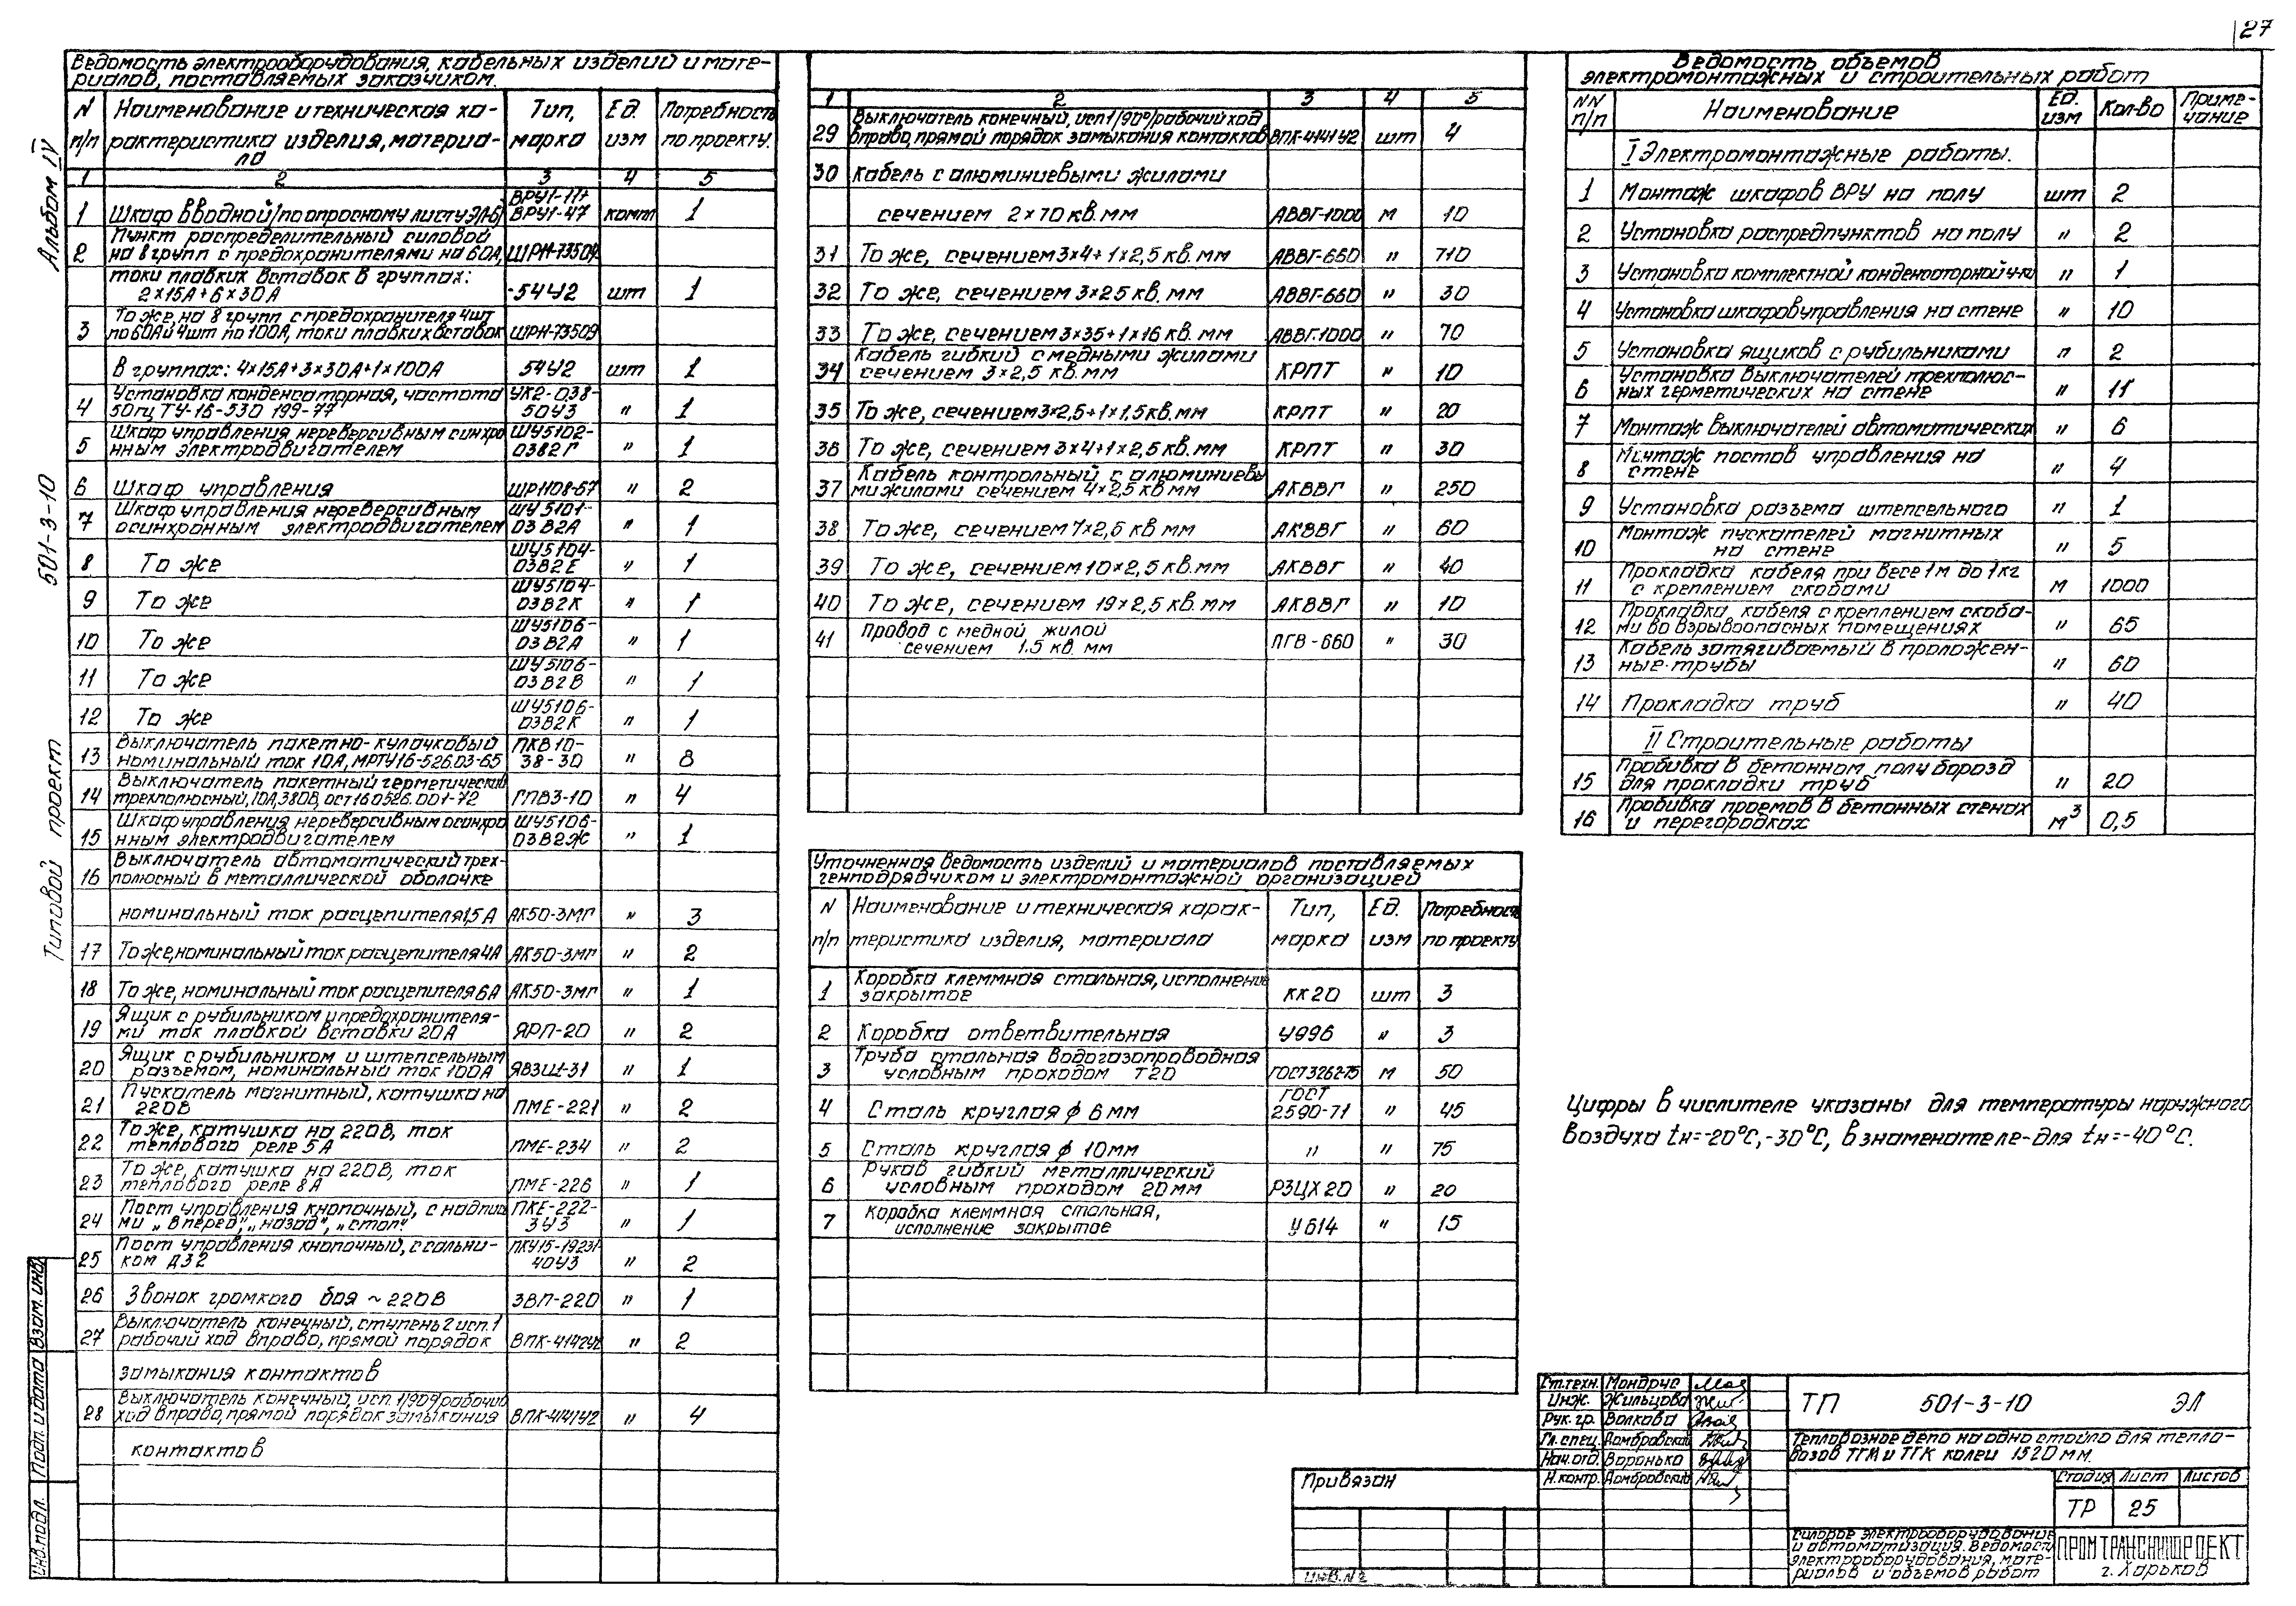 27
Альбом IV
501-3-10
Типовой проект
Ведомость электрооборудования, кабельных изделий и мате-
риалов, поставляемых заказчиком.
N п/п | Наименование и техническая ха-рактеристика изделия, материа-ла | Тип, марка | Ед. изм | Потребность по проекту.
1 2 3 4 5
1 Шкаф вводной /по опросному листу ЭЛ-6/ ВРУ1-11+ ВРУ1-47 комп 1
2 Пункт распределительный силовой
на 8 групп с предохранителями на 60А, ШРН-73504
токи плавких вставок в группах:
2×15А+6×30А -54У2 шт 1
3 То же, на 8 групп с предохранителя 4шт
по 60А и 4шт по 100А, токи плавких вставок ШРН-73509
в группах: 4×15А+3×30А+1×100А 54У2 шт 1
4 Установка конденсаторная, частота УК2-038-
50гц ТУ-16-530 199-77 50У3 " 1
5 Шкаф управления нереверсивным синхро ШУ5102-
нным электродвигателем 03В2Г " 1
6 Шкаф управления ШР1108-67 " 2
7 Шкаф управления нереверсивным ШУ5101-
асинхронным электродвигателем 03В2А " 1
8 То же ШУ5104-03В2Е " 1
9 То же ШУ5104-03В2К " 1
10 То же ШУ5106-03В2А " 1
11 То же ШУ5106-03В2В " 1
12 То же ШУ5106-03В2К " 1
13 Выключатель пакетно-кулачковый ПКВ10-
номинальный ток 10А, МРТУ16-526.03-65 38-30 " 8
14 Выключатель пакетный герметический
трехполюсный, 10А, 380В, ост160526.001-72 ГПВ3-10 " 4
15 Шкаф управления нереверсивным асинхро ШУ5106-
нным электродвигателем 03В2Ж " 1
16 Выключатель автоматический трех-
полюсный в металлической оболочке
номинальный ток расцепителя 1,5А АК50-3МГ " 3
17 То же, номинальный ток расцепителя 4А АК50-3МГ " 2
18 То же, номинальный ток расцепителя 6А АК50-3МГ " 1
19 Ящик с рубильником и предохранителя-
ми ток плавкой вставки 20А ЯРП-20 " 2
20 Ящик с рубильником и штепсельным
разъемом, номинальный ток 100А ЯВЗШ-31 " 1
21 Пускатель магнитный, катушка на
220В ПМЕ-221 " 2
22 То же, катушка на 220В, ток
теплового реле 5А ПМЕ-234 " 2
23 То же, катушка на 220В, ток
теплового реле 8А ПМЕ-226 " 1
24 Пост управления кнопочный, с надпися ПКЕ-222-
ми „вперед", „назад", „стоп" 3У3 " 1
25 Пост управления кнопочный, с сальни- ПКУ15-19231-
ком Д32 40У3 " 2
26 Звонок громкого боя ~220В ЗВП-220 " 1
27 Выключатель конечный, ступень 2 исп.1
рабочий ход вправо, прямой порядок ВПК-4142У2 " 2
замыкания контактов
28 Выключатель конечный, исп. 1/90º/рабочий
ход вправо, прямой порядок замыкания ВПК-4141У2 " 4
контактов
1 2 3 4 5
29 Выключатель конечный, исп 1/90º/рабочий ход
вправо, прямой порядок замыкания контактов ВПК-4141У2 шт 4
30 Кабель с алюминиевыми жилами
сечением 2×70 кв.мм АВВГ-1000 м 10
31 То же, сечением 3×4+1×2,5 кв.мм АВВГ-660 " 710
32 То же, сечением 3×25 кв.мм АВВГ-660 " 30
33 То же, сечением 3×35+1×16 кв.мм АВВГ-1000 " 70
34 Кабель гибкий с медными жилами
сечением 3×2,5 кв.мм КРПТ " 10
35 То же, сечением 3×2,5+1×1,5 кв.мм КРПТ " 20
36 То же, сечением 3×4+1×2,5 кв.мм КРПТ " 30
37 Кабель контрольный с алюминиевы
ми жилами сечением 4×2,5 кв мм АКВВГ " 250
38 То же, сечением 7×2,5 кв мм АКВВГ " 60
39 То же, сечением 10×2,5 кв.мм АКВВГ " 40
40 То же, сечением 19×2,5 кв.мм АКВВГ " 10
41 Провод с медной жилой
сечением 1.5 кв. мм ПГВ-660 " 30
Уточненная ведомость изделий и материалов поставляемых
генподрядчиком и электромонтажной организацией
N п/п | Наименование и техническая харак-теристика изделия, материала | Тип, марка | Ед. изм | Потребность по проекту
1 Коробка клеммная стальная, исполнение
закрытое КК20 шт 3
2 Коробка ответвительная У996 " 3
3 Труба стальная водогазопроводная
условным проходом Т20 ГОСТ3262-75 м 50
4 Сталь круглая ф 6мм ГОСТ 2590-71 " 45
5 Сталь круглая ф 10мм " " 75
6 Рукав гибкий металлический
условным проходом 20мм РЗЦХ20 " 20
7 Коробка клеммная стальная,
исполнение закрытое У614 " 15
Ведомость объемов
электромонтажных и строительных работ
NN п/п | Наименование | Ед. изм | Кол-во | Приме-чание
I Электромонтажные работы.
1 Монтаж шкафов ВРУ на полу шт 2
2 Установка распредпунктов на полу " 2
3 Установка комплектной конденсаторной у-ки " 1
4 Установка шкафов управления на стене " 10
5 Установка ящиков с рубильниками " 2
6 Установка выключателей трехполюс-
ных герметических на стене " 11
7 Монтаж выключателей автоматических " 6
8 Монтаж постов управления на
стене " 4
9 Установка разъема штепсельного " 1
10 Монтаж пускателей магнитных
на стене " 5
11 Прокладка кабеля при весе 1м до 1кг
с креплением скобами м 1000
12 Прокладка кабеля с креплением скоба-
ми во взрывоопасных помещениях " 65
13 Кабель затягиваемый в проложен-
ные трубы " 60
14 Прокладка труб " 40
II Строительные работы
15 Пробивка в бетонном полу борозд
для прокладки труб " 20
16 Пробивка проемов в бетонных стенах
и перегородках м³ 0,5
Цифры в числителе указаны для температуры наружного
воздуха tн=-20°С,-30°С, в знаменателе-для tн=-40°С.
Ст.техн. Мандрус
Инж. Жильцова
Рук. гр. Волкова
Гл. спец. Домбровский
Нач. отд. Воронько
Н. контр. Домбровский
ТП 501-3-10 ЭЛ
Тепловозное депо на одно стойло для тепло-
возов ТГМ и ТГК колеи 1520мм.
Стадия Лист Листов
ТР 25
Силовое электрооборудование
и автоматизация. Ведомости
электрооборудования, мате-
риалов и объемов работ
ПРОМТРАНСНИИПРОЕКТ
г. Харьков
Привязан
Инв.№
Взам. инв.
Подп. и дата
Инв.№подл.